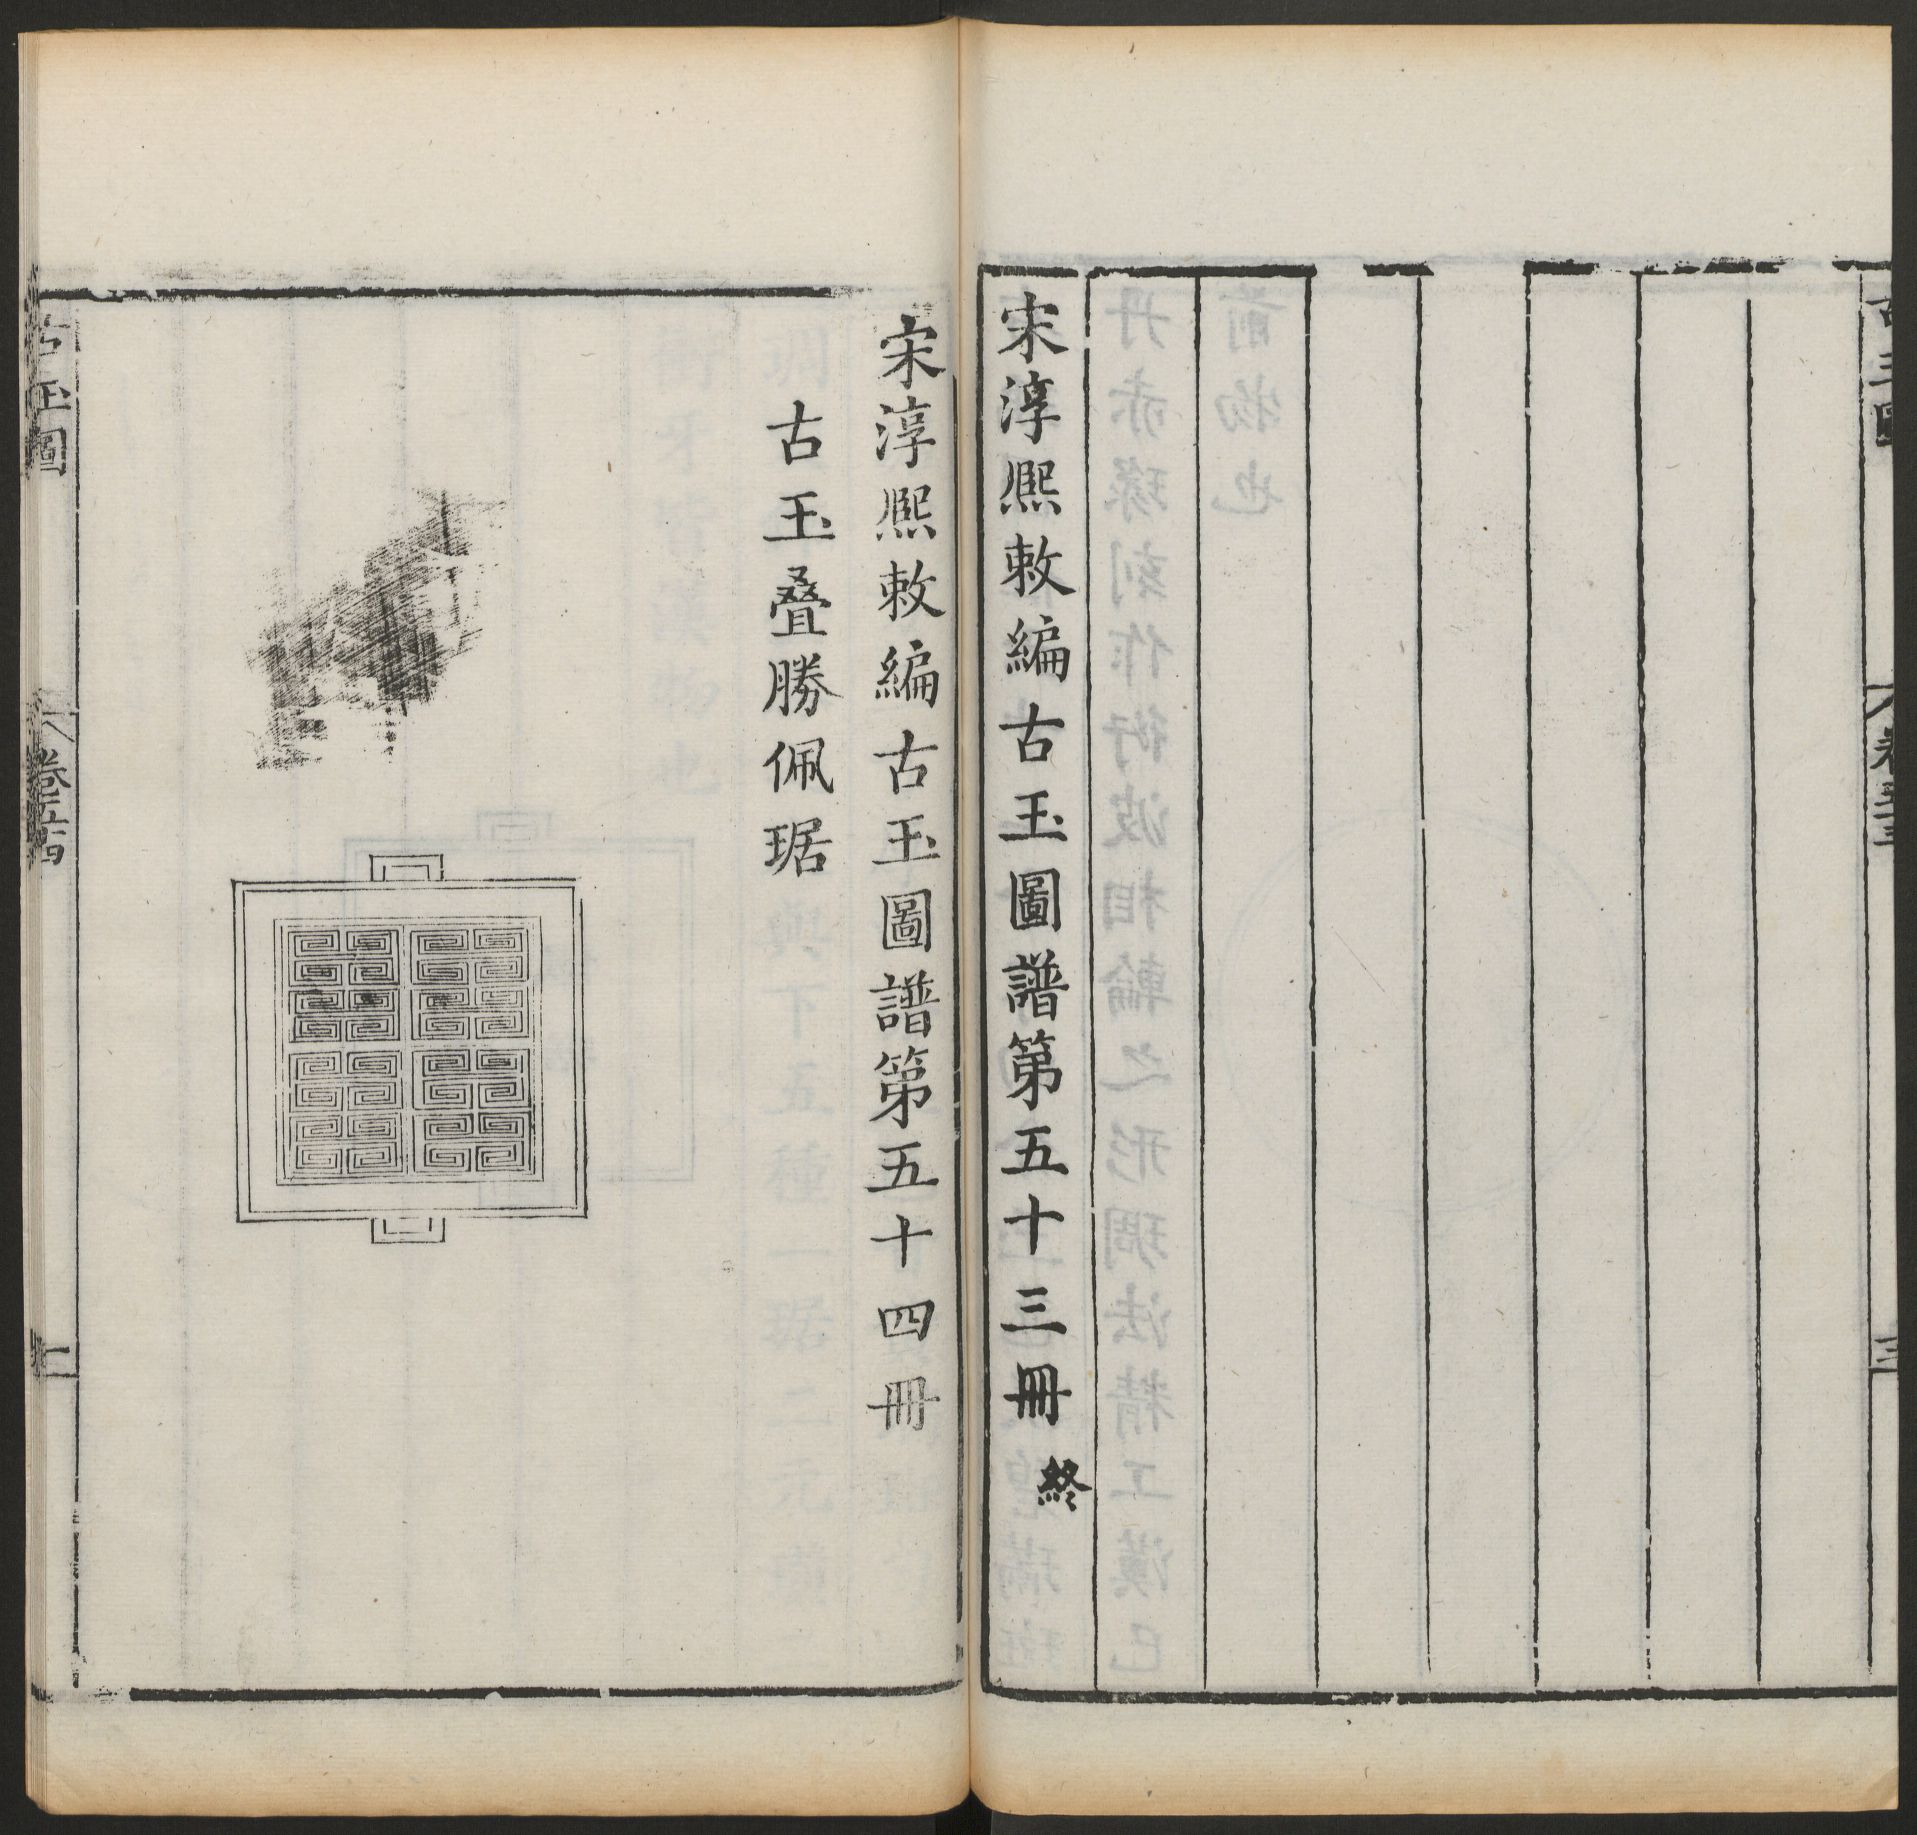 宋淳熙敕編古玉圖譜第五十三冊 終
宋淳熙敕編古玉圖譜第五十四冊
古玉疊勝佩琚
古玉圖
卷五十四
一